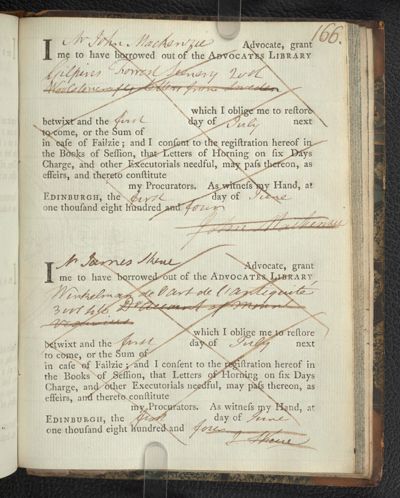 166.
I Mr John Mackenzie Advocate, grant
me to have borrowed out of the ADVOCATES LIBRARY
Gilpin's Forrest Scenery 2 vol
Letters from Sweden
which I oblige me to restore
betwixt and the first day of July next
to come, or the Sum of
in case of Failzie; and I consent to the registration hereof in
the Books of Session, that Letters of Horning on six Days
Charge, and other Executorials needful, may pass thereon, as
effeirs, and thereto constitute
my Procurators. As witness my Hand, at
EDINBURGH, the first day of June
one thousand eight hundred and four
John Mackenzie
I Mr James Skene Advocate, grant
me to have borrowed out of the ADVOCATES LIBRARY
Winkelman de l'art de l'antiquité
3 vol 4to Account of Mount
Vesuvius
which I oblige me to restore
betwixt and the first day of July next
to come, or the Sum of
in case of Failzie; and I consent to the registration hereof in
the Books of Session, that Letters of Horning on six Days
Charge, and other Executorials needful, may pass thereon, as
effeirs, and thereto constitute
my Procurators. As witness my Hand, at
EDINBURGH, the first day of June
one thousand eight hundred and four
J Skene